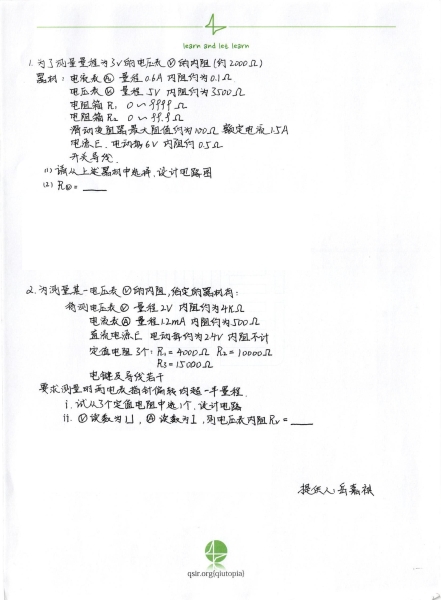 learn and let learn
1. 为了测量量程为3V的电压表Ⓥ的内阻(约2000Ω)
器材: 电流表Ⓐ 量程0.6A 内阻约为0.1Ω
电压表Ⓥ 量程 5V 内阻约为3500Ω
电阻箱 R₁ 0~9999Ω
电阻箱 R₂ 0~99.9Ω
滑动变阻器最大阻值约为100Ω 额定电流1.5A
电源E. 电动势6V 内阻约 0.5Ω
开关导线.
(1) 请从上述器材中选择, 设计电路图
(2) RⓋ = ____
2. 为测量某一电压表Ⓥ的内阻, 给定的器材有:
待测电压表Ⓥ 量程2V 内阻约为4KΩ
电流表Ⓐ 量程1.2mA 内阻约为500Ω
直流电源E 电动势约为2.4V 内阻不计
定值电阻3个: R₁=4000Ω R₂=10000Ω
R₃=15000Ω
电键及导线若干
要求测量时两电表指针偏转均超一半量程.
i. 试从3个定值电阻中选1个, 设计电路
ii. Ⓥ读数为U, Ⓐ读数为I, 则电压表内阻Rv = ____
提供人 岳嘉祺
qsir.org[qiutopia]